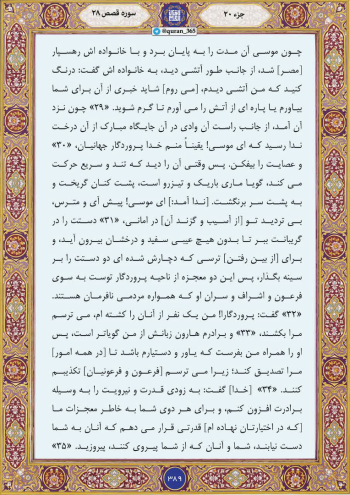 جزء ۲۰
سوره قصص ۲۸
@quran_365
چــون موســی آن مدت را بــه پایــان بــرد و بـا خانـواده اش رهسـپار
[مصر] شد، از جانب طور آتشی دید، به خانواده اش گفت: درنگ
کنید که من آتشی دیـدم، [می روم] شاید خبری از آن برای شـما
بیاورم یا پاره ای از آتش را می آورم تا گـرم شوید. «۲۹» چون نزد
آن آمد، از جانب راست آن وادی در آن جایگاه مبارک از آن درخت
ندا رسـید که ای موسی! یقیناً منـم خدا پروردگار جهانیان، «۳۰»
و عصایت را بیفکن. پس وقتی آن را دید که تند و سریع حرکت
می کند، گویـا مـاری باریـک و تیـزرو است، پشت کنـان گریخـت و
به پشت سـر برنگشت. [نـدا آمد:] ای موسی! پیش آی و مترس،
بی تردیـد تـو [از آسیب و گزند آن] در امانـی، «۳۱» دستت را در
گریبانت ببـر تـا بـدون هیـچ عیبـی سـفید و درخشان بیرون آید، و
برای [از بین رفتن] ترسـی که دچارش شده ای دو دستت را بـر
سینه بگذار، پس این دو معجزه از ناحیه پروردگار توست به سوی
فرعـون و اشـراف و سـران او کـه همـواره مردمـی نافرمان هسـتند.
«۳۲» گفت: پروردگارا! من یک نفـر از آنان را کشته ام، می ترسـم
مرا بکشند، «۳۳» و برادرم هارون زبانش از من گویاتر است، پس
او را همراه من بفرسـت که یـاور و دسـتیارم باشد تـا [در همه امور]
مرا تصدیق کند؛ زیـرا مـی ترسـم [فرعون و فرعونیان] تکذیبـم
کننـد. «۳۴» [خدا] گفـت: بـه زودی قـدرت و نیرویـت را بـه وسـیله
برادرت افـزون کنـم، و بـرای هـر دوی شـما به خاطـر معجزات ما
[که در اختیارتان نهاده ام] قدرتی قرار می دهم که آنان به شما
دست نیابند، شما و آنان که از شما پیروی کنند، پیروزید. «۳۵»
۳۸۹